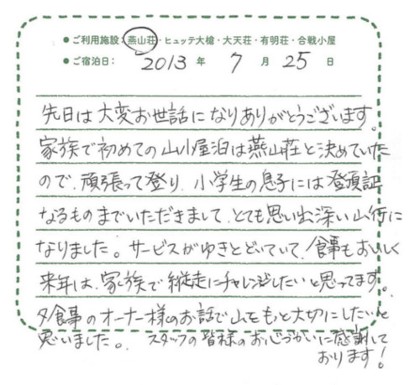 ●ご利用施設:燕山荘・ヒュッテ大槍・大天荘・有明荘・合戦小屋
●ご宿泊日: 2013 年 7 月 25 日
先日は大変お世話になりありがとうございます。
家族で初めての山小屋泊は燕山荘と決めていた
ので、頑張って登り、小学生の息子には登頂証
なるものまでいただきまして、とても思い出深い山行に
なりました。サービスがゆきとどいていて、食事もおいしく
来年は、家族で縦走にチャレンジしたいと思ってます。
夕食事のオーナー様のお話で山をもっと大切にしたいと
思いました。スタッフの皆様のお心づかいに感謝して
おります!